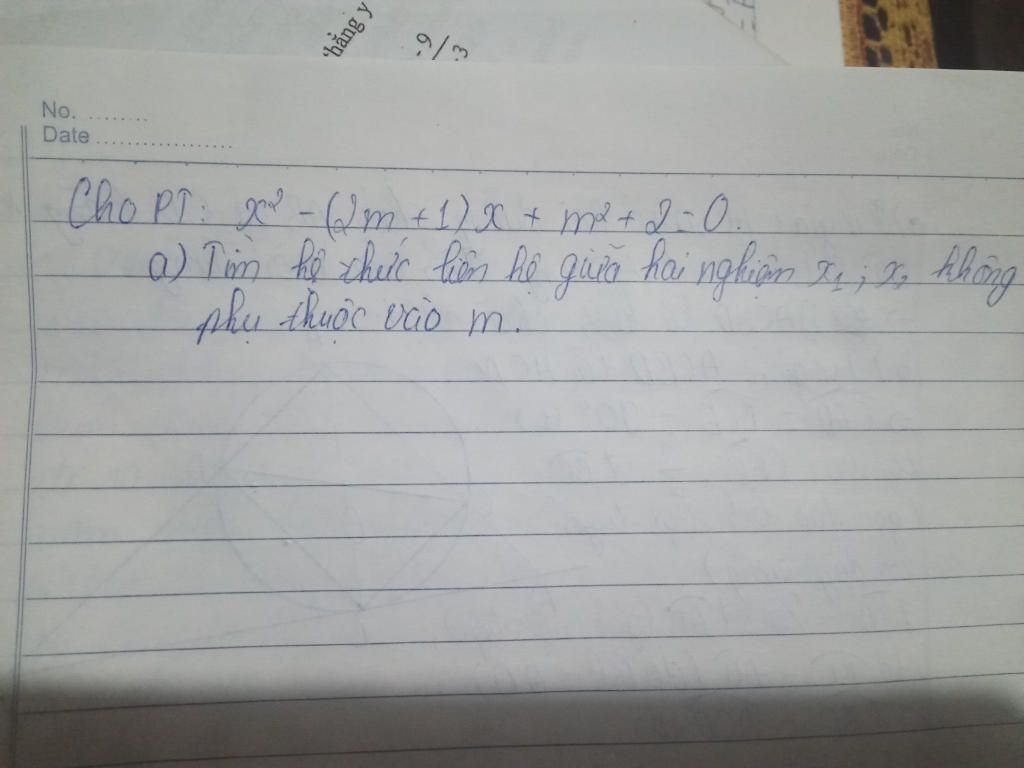 hẳng y
-9/3
No. ........
Date ..................
Cho PT: x² - (2m + 1)x + m² + 2 = 0.
a) Tìm hệ thức liên hệ giữa hai nghiệm x₁; x₂ không
phụ thuộc vào m.